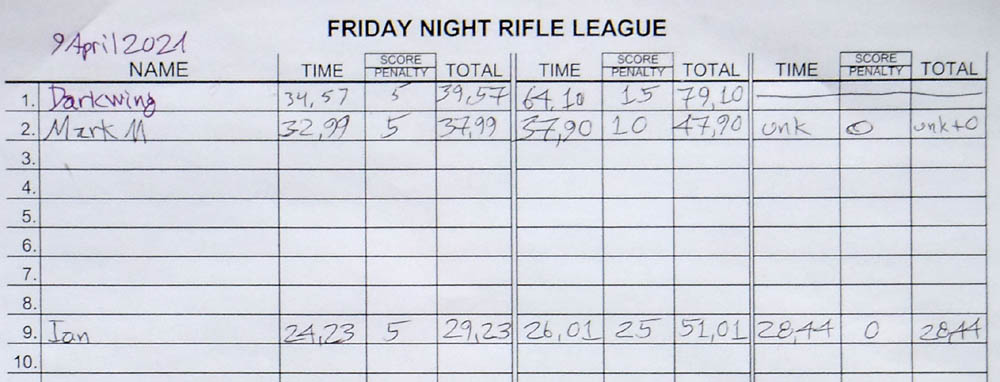 FRIDAY NIGHT RIFLE LEAGUE
9 April 2021
NAME TIME SCORE PENALTY TOTAL TIME SCORE PENALTY TOTAL TIME SCORE PENALTY TOTAL
1. Darkwing 34,57 5 39,57 64,10 15 79,10
2. Mark M 32,99 5 37,99 37,90 10 47,90 unk 0 unk+0
3.
4.
5.
6.
7.
8.
9. Ian 24,23 5 29,23 26,01 25 51,01 28,44 0 28,44
10.